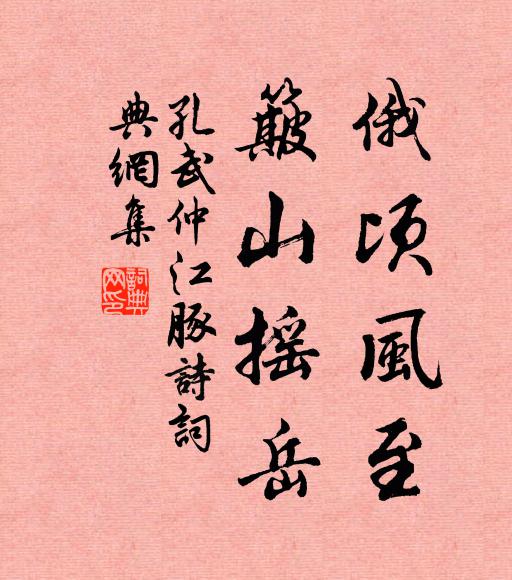 俄頃風至
簸山摇岳
孔武仲江豚詩詞
典網集
詞典網印